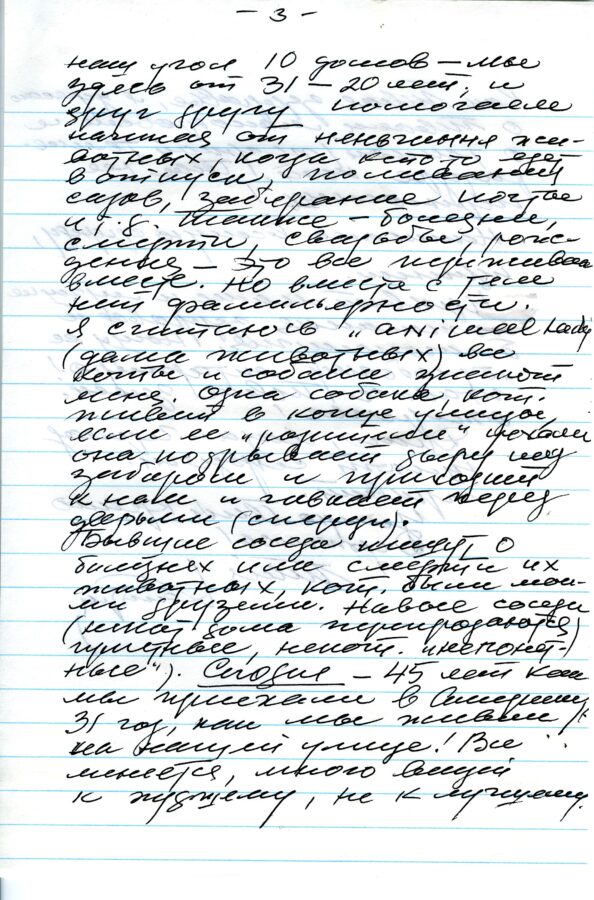 - 3 -
наш угол 10 домов – мы
здесь от 31 – 20 лет, и
друг другу помогаем
начиная от ния жи-
вотных, когда кто то едет
в отпуск, поливания
садов, забирание почты
и т.д. Также – болезни,
смерти, свадьбы, рож-
дение – это все переживаем
вместе. Но вместе с тем
нет фамильярности.
Я считаюсь „animal Lady
(дама животных) все
коты и собаки знают
меня. Одна собака, кот.
живет в конце улицы,
если ее „родители" уехали
она подрывает дыру под
забором и приходит
к нам и гавкает перед
дверьми (спереди).
Бывшие соседи пишут о
болезнях или смерти их
животных, кот. были мои-
ми друзьями. Новые соседи
(некот. дома перепродаются)
приятные, некот.
ные"). Сегодня – 45 лет как
мы приехали в Америку
31 год, как мы живем
на нашей улице! Все
меняется, много вещей
к худшему, не к лучшему.